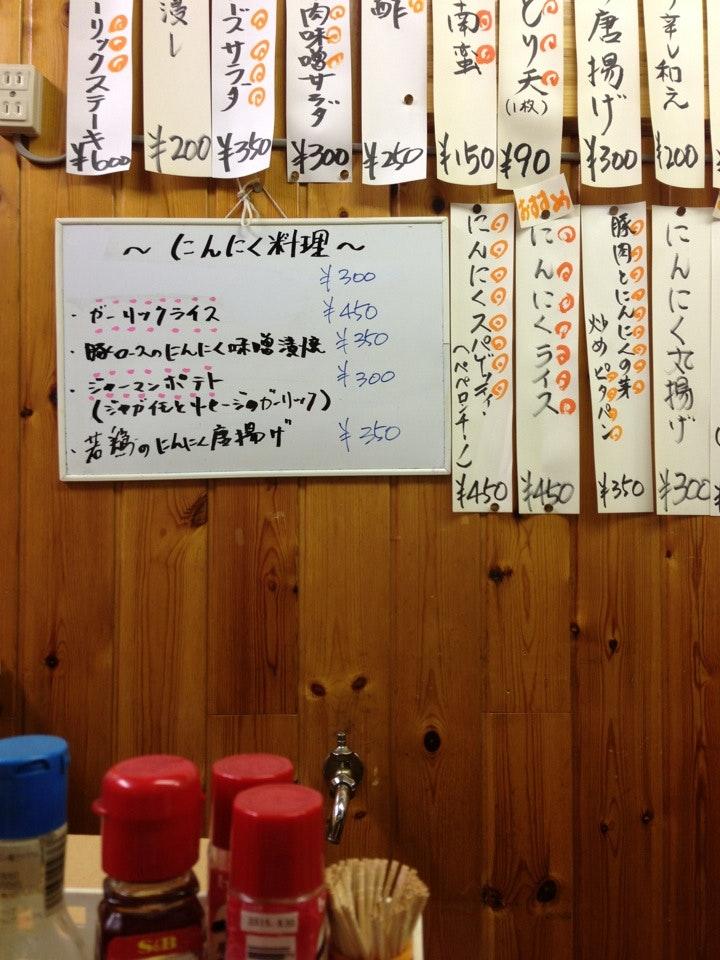 ーリックステーキ
¥600
漬し
¥200
ズサラダ
¥350
肉味噌サラダ
¥300
酢
¥250
南蛮
¥150
とり天
(1枚)
¥90
唐揚げ
¥300
辛し和え
¥200
～ にんにく料理 ～
¥300
・ガーリックライス ¥450
・豚ロースのにんにく味噌漬焼 ¥350
・ジャーマンポテト ¥300
(ジャガイモとソーセージのガーリック)
・若鶏のにんにく唐揚げ ¥350
にんにくスパゲッティー
(ペペロンチーノ)
¥450
おすすめ
にんにくライス
¥450
豚肉とにんにくの芽
炒め ピリカラ
¥350
にんにく丸揚げ
¥300
S&B